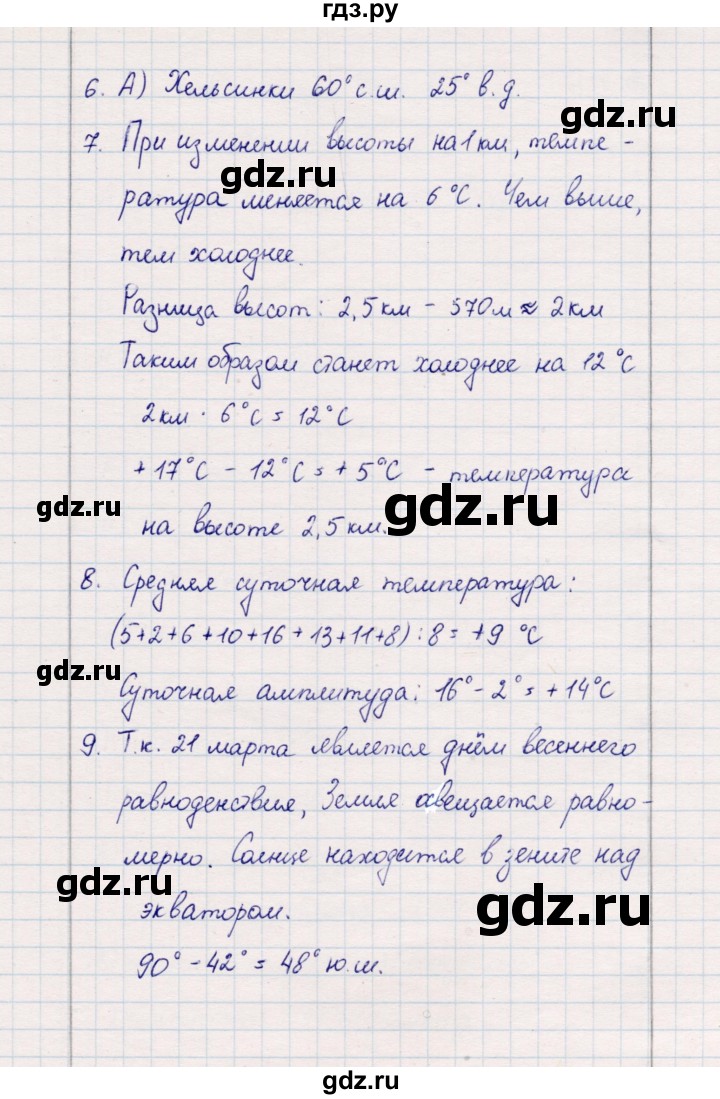 гдз.ру
6. А) Хельсинки 60° с.ш. 25° в.д.
gdz.ru
7. При изменении высоты на 1 км, темпе-
gdz.ru
ратура меняется на 6 °С. Чем выше,
тем холоднее.
Разница высот: 2,5 км - 570 м ≈ 2 км
Таким образом станет холоднее на 12 °С
2 км · 6 °С = 12 °С
+ 17 °С - 12 °С = + 5 °С - температура
gdz.ru
gdz.ru
на высоте 2,5 км.
8. Средняя суточная температура:
(5+2+6+10+16+13+11+8) : 8 = +9 °С
gdz.ru
Суточная амплитуда: 16° - 2° = + 14 °С
9. Т.к. 21 марта является днём весеннего
равноденствия, Земля освещается равно-
мерно. Солнце находится в зените над
gdz.ru
gdz.ru
экватором.
90° - 42° = 48° ю.ш.
gdz.ru